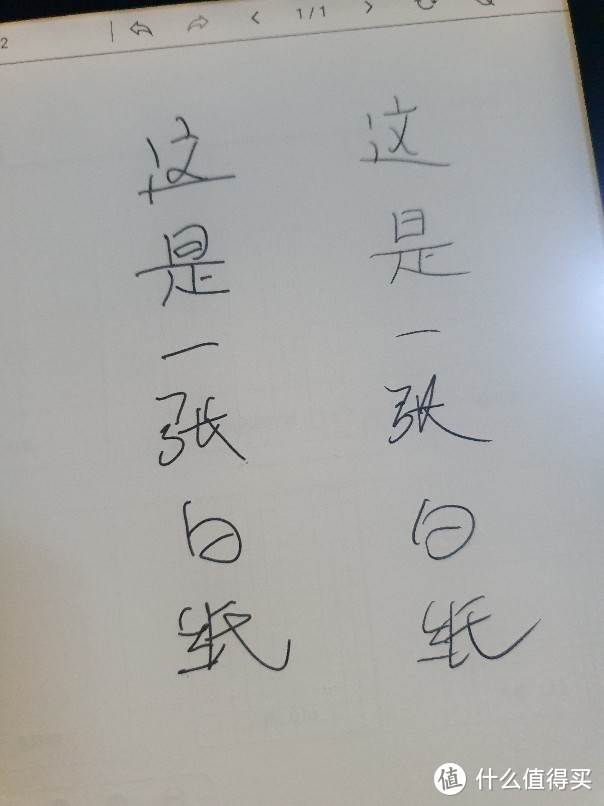 2
1/1
这是一张白纸
这是一张白纸
值 什么值得买